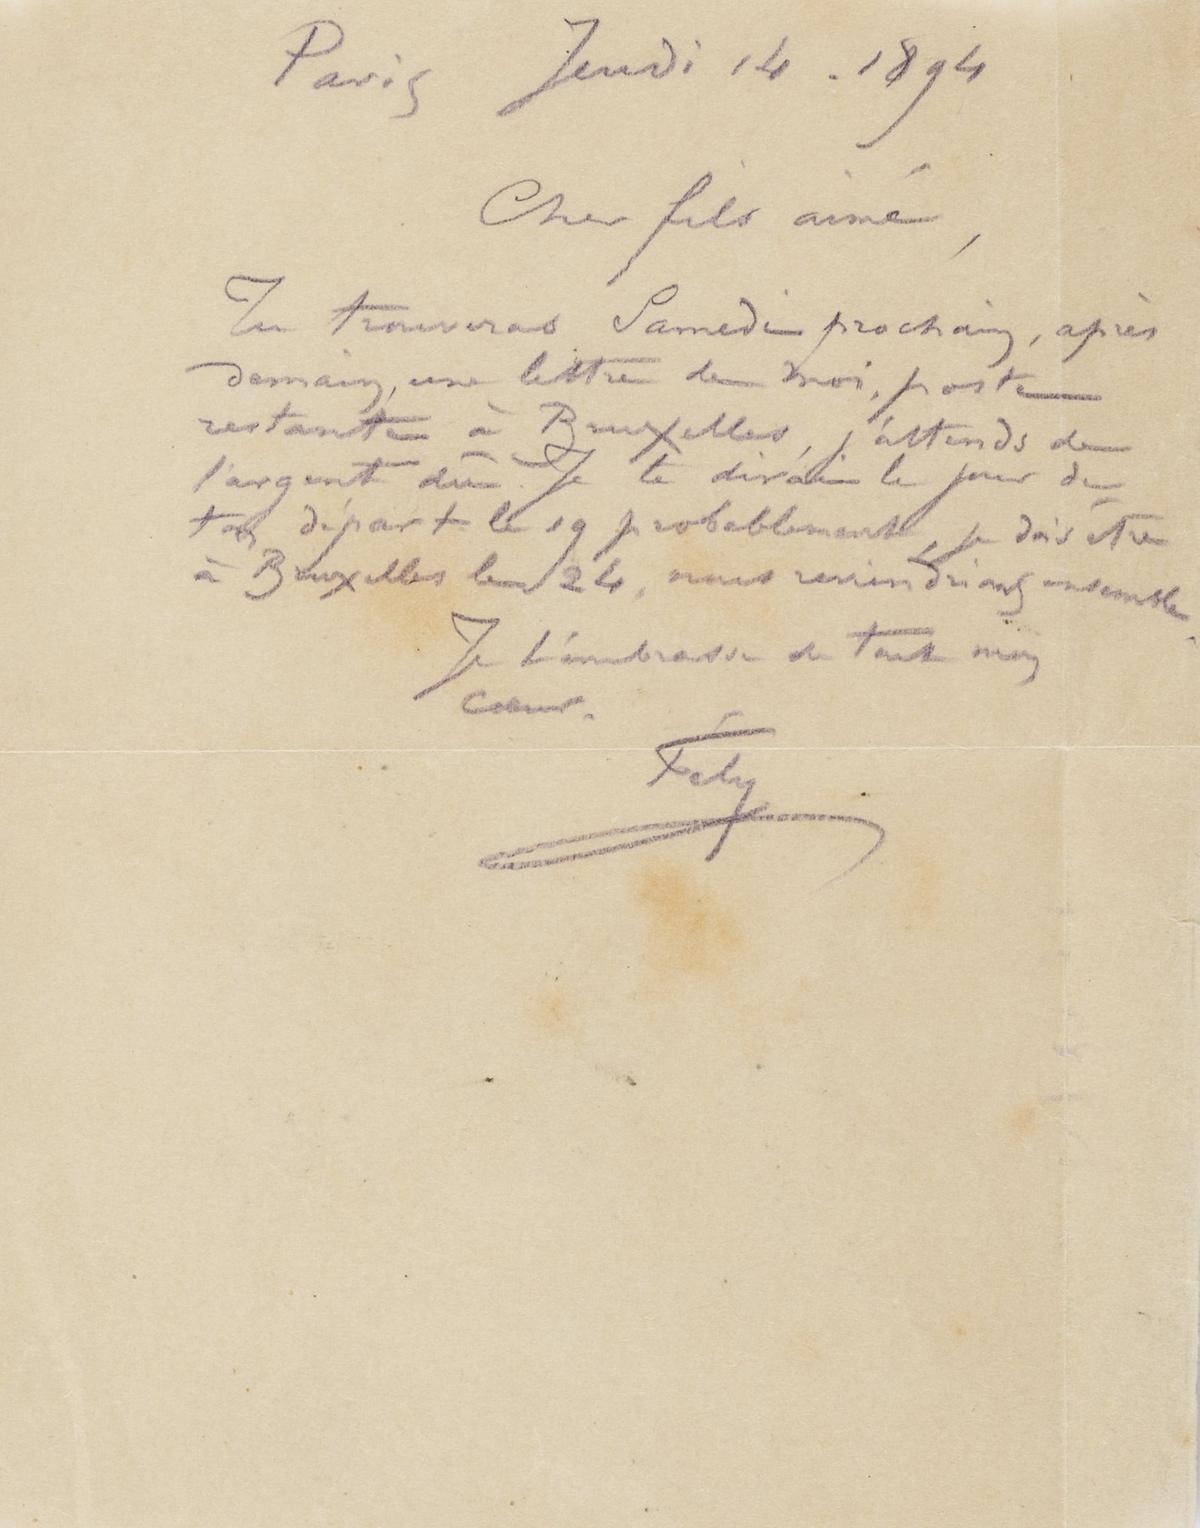 Paris Jeudi 14 . 1894
Cher fils aimé,
Tu trouveras Samedi prochain, après
demain, une lettre de moi, poste
restante à Bruxelles, j'attends de
l'argent dû. Je te dirai le jour de
ton départ le 19 probablement, je dois être
à Bruxelles le 24, nous reviendrions ensemble.
Je t'embrasse de tout mon
cœur.
Fély